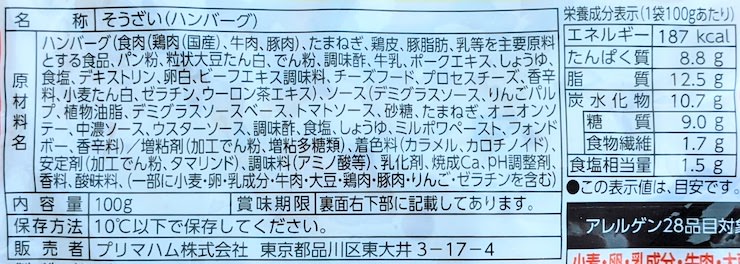 名　称 そうざい(ハンバーグ)
原材料名
ハンバーグ(食肉(鶏肉(国産)、牛肉、豚肉)、たまねぎ、鶏皮、豚脂肪、乳等を主要原料
とする食品、パン粉、粒状大豆たん白、でん粉、調味酢、牛乳、ポークエキス、しょうゆ、
食塩、デキストリン、卵白、ビーフエキス調味料、チーズフード、プロセスチーズ、香辛
料、小麦たん白、ゼラチン、ウーロン茶エキス)、ソース(デミグラスソース、りんごパル
プ、植物油脂、デミグラスソースベース、トマトソース、砂糖、たまねぎ、オニオンソ
テー、中濃ソース、ウスターソース、調味酢、食塩、しょうゆ、ミルポワペースト、フォンド
ボー、香辛料)/増粘剤(加工でん粉、増粘多糖類)、着色料(カラメル、カロチノイド)、
安定剤(加工でん粉、タマリンド)、調味料(アミノ酸等)、乳化剤、焼成Ca、pH調整剤、
香料、酸味料、(一部に小麦・卵・乳成分・牛肉・大豆・鶏肉・豚肉・りんご・ゼラチンを含む)
内容量 100g 賞味期限 裏面右下部に記載してあります。
保存方法 10℃以下で保存してください。
販売者 プリマハム株式会社 東京都品川区東大井3-17-4
栄養成分表示(1袋100gあたり)
エネルギー 187 kcal
たんぱく質 8.8 g
脂質 12.5 g
炭水化物 10.7 g
糖質 9.0 g
食物繊維 1.7 g
食塩相当量 1.5 g
●この表示値は、目安です。
アレルゲン28品目対
小麦・卵・乳成分・牛肉・大